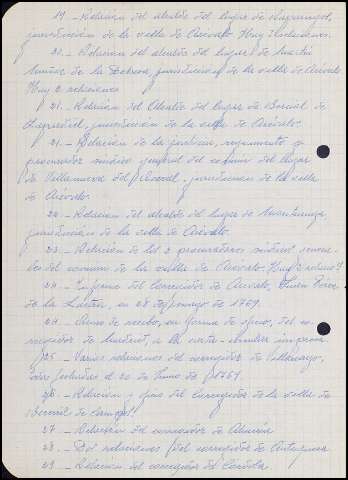 19 - Relación del alcalde del lugar de
jurisdicción de la villa de Arévalo. Hay 2 relaciones.
20 - Relación del alcalde del lugar de Martín
Muñoz de la Dehesa, jurisdicción de la villa de Arévalo.
Hay 2 relaciones
21. - Relación del Alcalde del lugar de Bernuí de
Zapardiel, jurisdicción de la villa de Arévalo.
21. - Relación de la justicia, regimiento y
procurador síndico general del común del lugar
de Villanueva del jurisdicción de la villa
de Arévalo.
22 - Relación del alcalde del lugar de
jurisdicción de la villa de Arévalo.
23 - Relación de los 2 procuradores síndicos
del común de la villa de Arévalo. Hay 2
24 - Informe del Corregidor de Arévalo,
de la en 28 de mayo de 1769.
24. - Aviso de recibo, en forma de oficio, del co-
rregidor de a la carta circular impresa.
25 - Varias relaciones del corregidor de
fechadas el 20 de Junio de 1769.
26 - Relación y oficio del Corregidor de la villa de
Becerril de Campos.
27 - Relación del corregidor de Almería
28 - Dos relaciones del corregidor de Antequera
29 - Relación del corregidor de